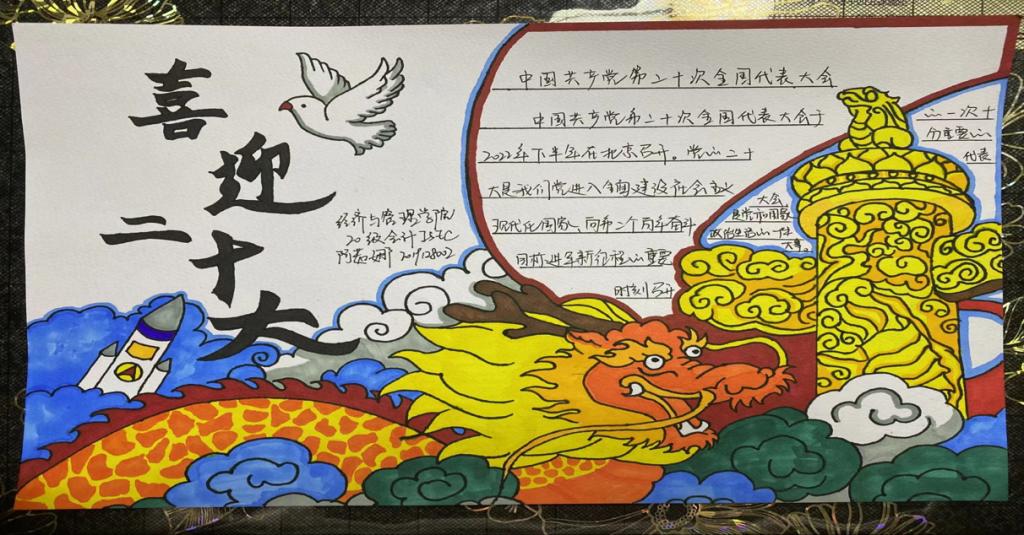 喜
迎
二
十
大
经济与管理学院
20级会计ISEC
中国共产党第二十次全国代表大会
中国共产党第二十次全国代表大会于
2022年下半年在北京召开。党的二十
大是我们党进入全面建设社会主义
现代化国家、向第二个百年奋斗
目标进军新征程的重要
时刻召开
的一次十
分重要的
代表
大会
是党和国家
政治生活的一件
大事。